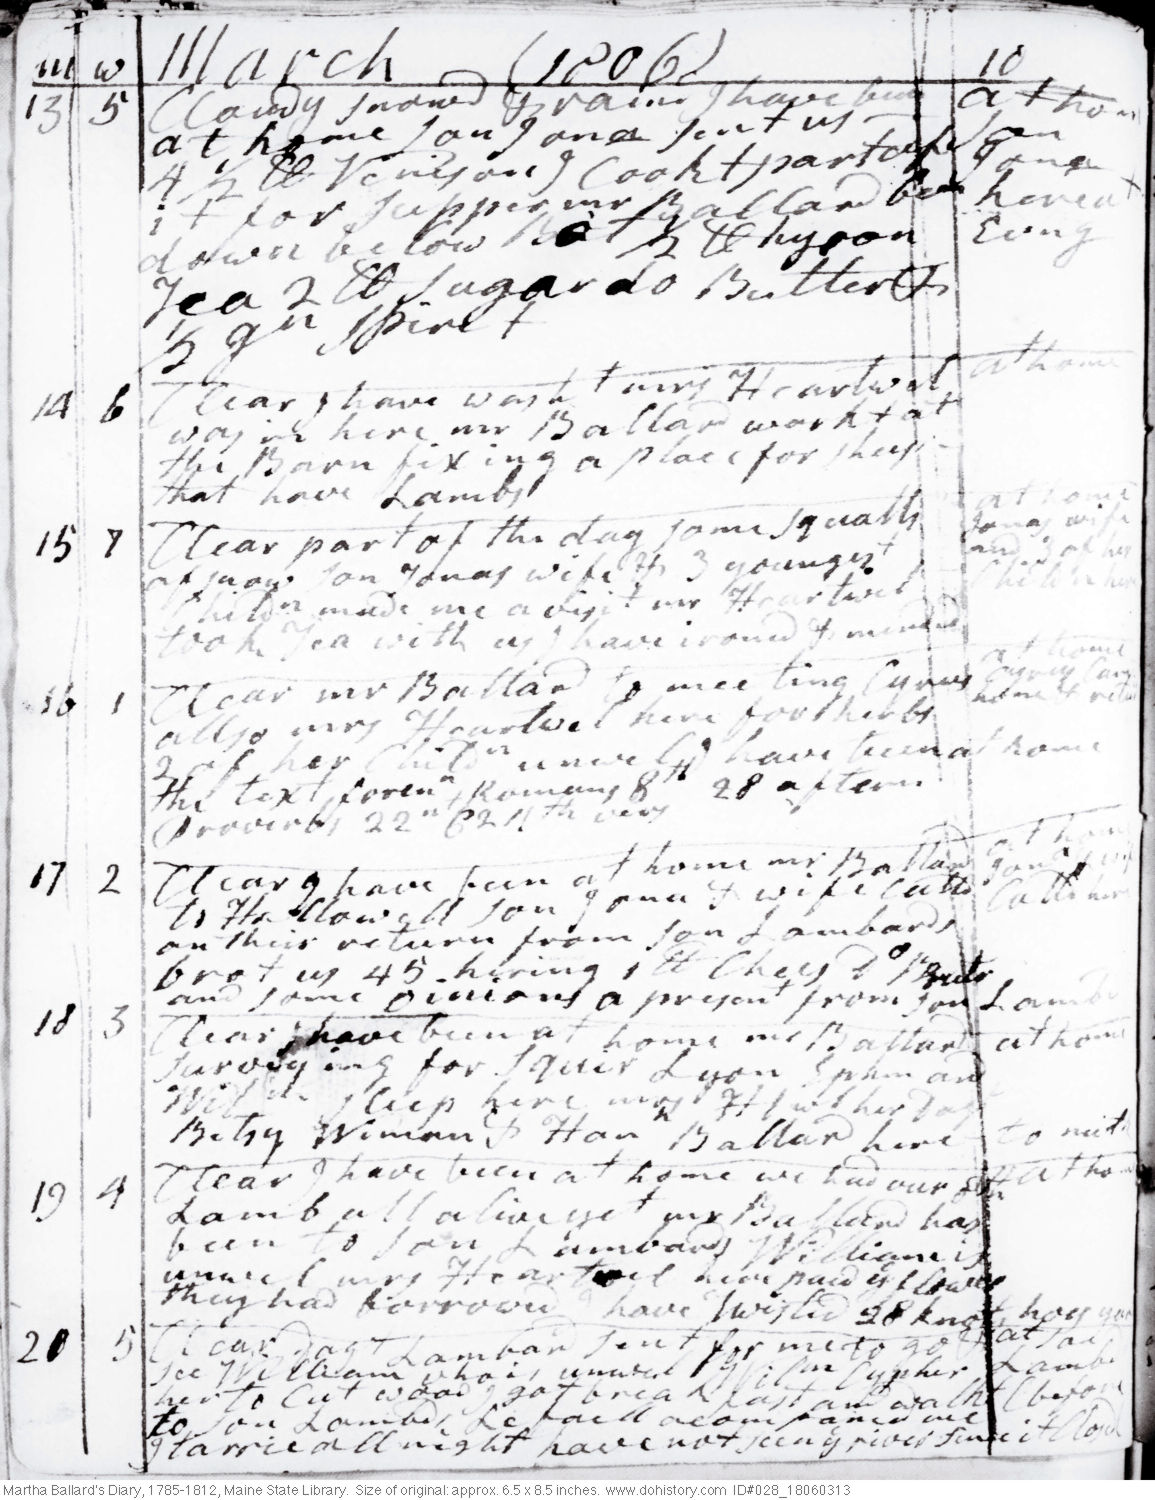 m w March (1806) 10
13 5 Cloudy snowd & raind I have been at home
at home son Jona sent us Son
4 ½ lb Venison I Cookt part of Jona
it for supper mr Ballard been here at
down below Bot ½ lb hyson Evng
Tea 2 lb sugar do Butter &
½ gn spirit
14 6 Clear I have washt mrs Heartwel at home
was in here mr Ballard workt at
the Barn fixing a place for sheep
that have Lambs
15 7 Clear part of the day some squalls at home
of snow son Jonas wife & 3 youngest Jonas wife
Childn made me a visit mr Heartwel and 3 of her
took Tea with us I have ironed & mended Childn here
16 1 Clear mr Ballard to meeting Cyrus at home
allso mrs Heartwel here for herbs Cyrus Came
2 of her Childn unwel I have been at home
the text foren Romans 8th 28 aftern
Proverbs 22nd & 24th vers
17 2 Clear I have been at home mr Ballard at home
to Hallowell son Jona & wife Calld Jona & wife
on their return from son Lambards Calld here
brot us 45 hering 1 lb Chees Do
and some oinions a present from son Lambd
18 3 Clear I have been at home mr Ballard at home
surveying for Squir Lyon Ephm and
Willm sleep here mrs & her Dagt
Betsy Wiman & Hanh Ballard here to nit
19 4 Clear I have been at home we had our 8th at home
Lamb all alive yet mr Ballard has
been to son Lambards William is
unwel mrs Heartwel here paid ye flower
they had borrowed I have twisted 28 knots hos yarn
20 5 Clear Dagt Lambard sent for me to go & at son
see William who is unwel Wilm Cypher Lambd
her to Cut wood I got breakfast and walkt before
to son Lambds De acompanied me
I tarrie all night have not seen ye river since it Closd
Martha Ballard's Diary, 1785-1812, Maine State Library. Size of original: approx. 6.5 x 8.5 inches. www.dohistory.com ID#028_18060313